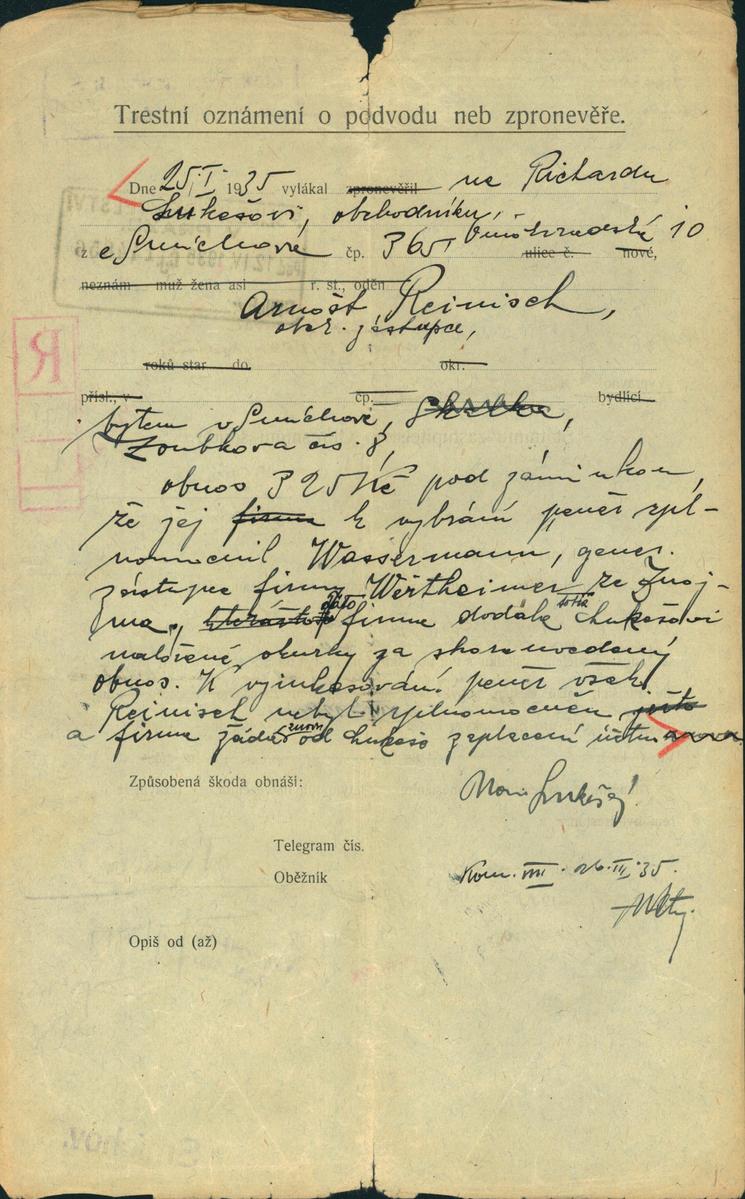 Trestní oznámení o podvodu neb zpronevěře.
Dne 25.I. 1935 vylákal zpronevěřil na Richardu
Lukešovi, obchodníku,
z Smíchově čp. 365 Vinohradská 10 ulice č. nové,
neznám muž žena asi r. st., oděn
Arnošt Reinisch,
obch. zástupce,
roků star do okr.
přísl., v čp. bydlící
bytem v Smíchově,
Zoubkova čís. 8,
obnos 325 Kč pod záminkou,
že jej firma k vybrání peněz zpl-
nomocnil Wassermann, gener.
zástupce firmy Wertheimer ze Znoj-
ma, tato firma dodala Lukešovi
naložené okurky za shora uvedený
obnos. K vyinkasování peněz však
Reinisch nebyl zplnomocněn jěto
a firma žádá znovu od Lukeše zaplacení účtu
Způsobená škoda obnáší:
Telegram čís.
Oběžník
Kom. VIII. 26.II.35.
Opiš od (až)